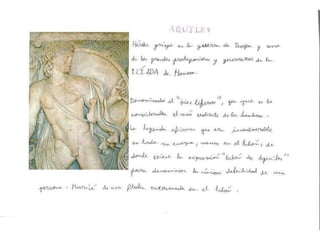 AQUILES
Héroe griego en la guerra de Troya y uno
de los grandes protagonistas y guerreros de la
ILÍADA de Homero.
Denominado el "pies ligeros", ya que se le
consideraba el más veloz de los hombres.
La leyenda afirma que era invulnerable
en todo su cuerpo, menos en el talón, de
donde viene la expresión "talón de Aquiles"
para denominar la única debilidad de una
persona. Murió de una flecha envenenada en el talón.